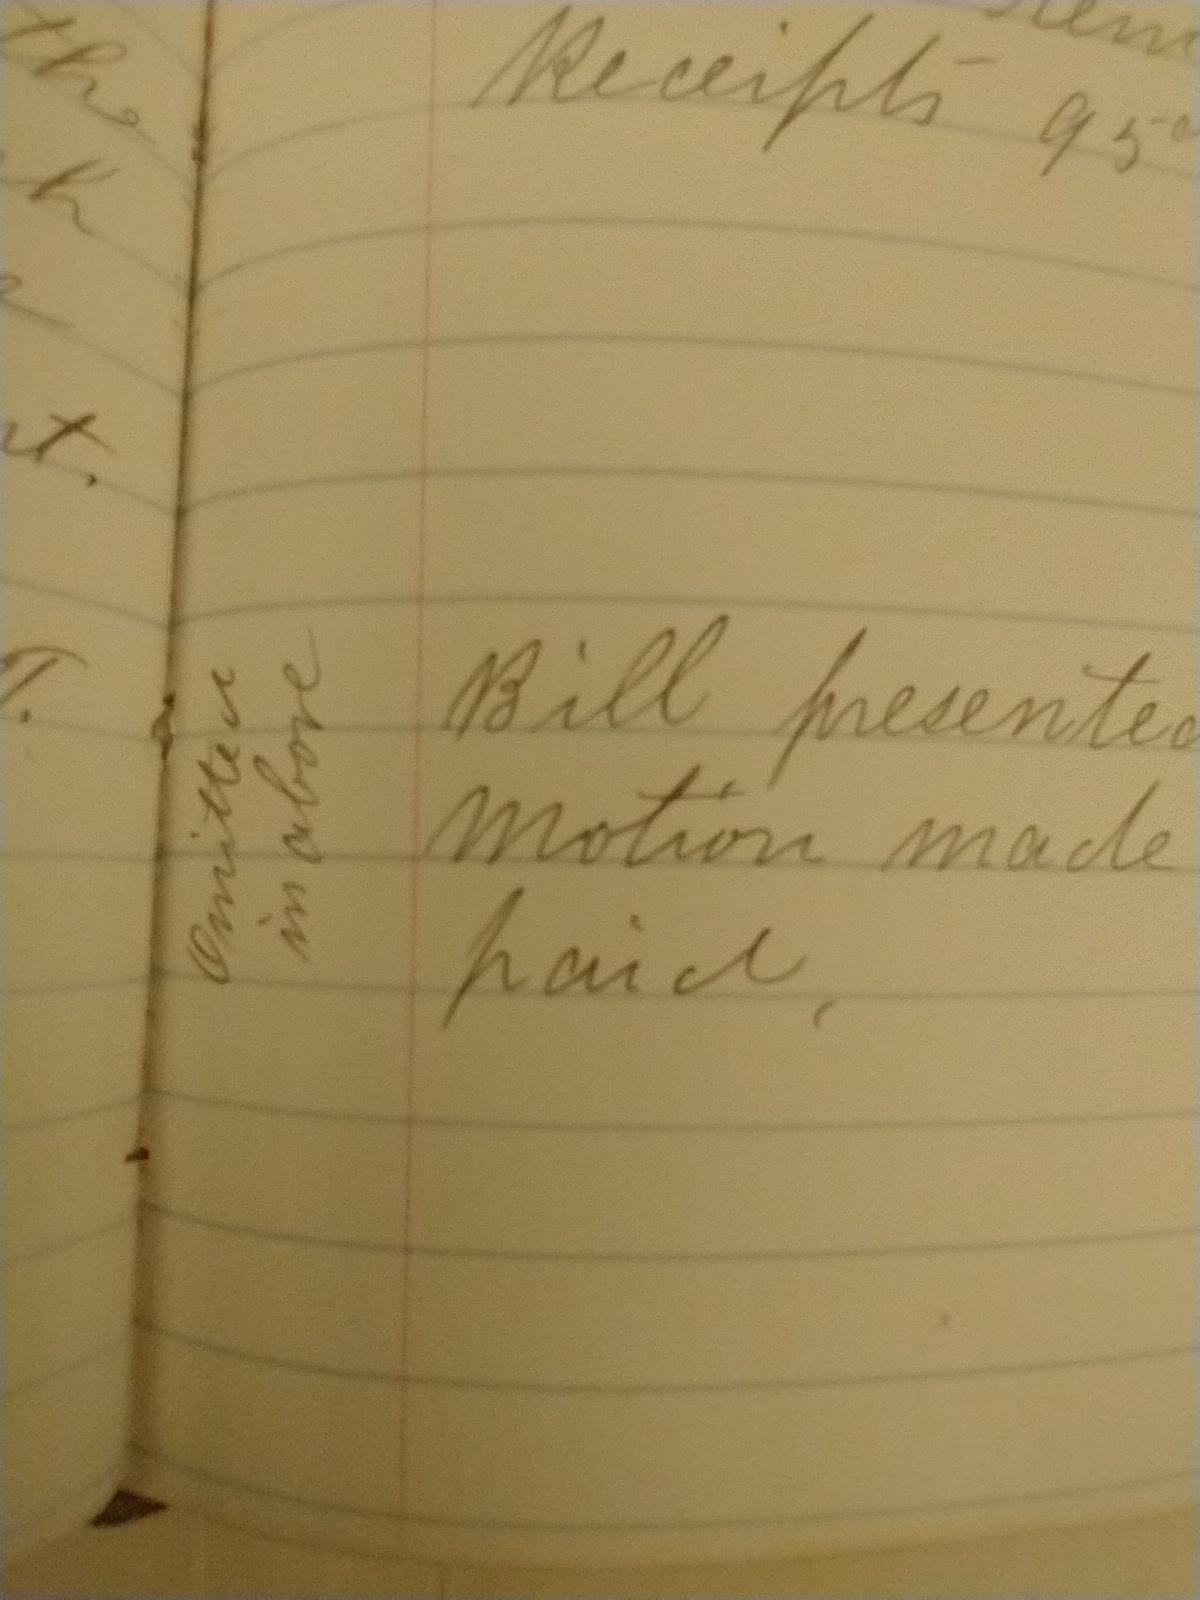 th
h
t.
T.
Receipts - 95
Omitted
in above
Bill presented
Motion made
paid.